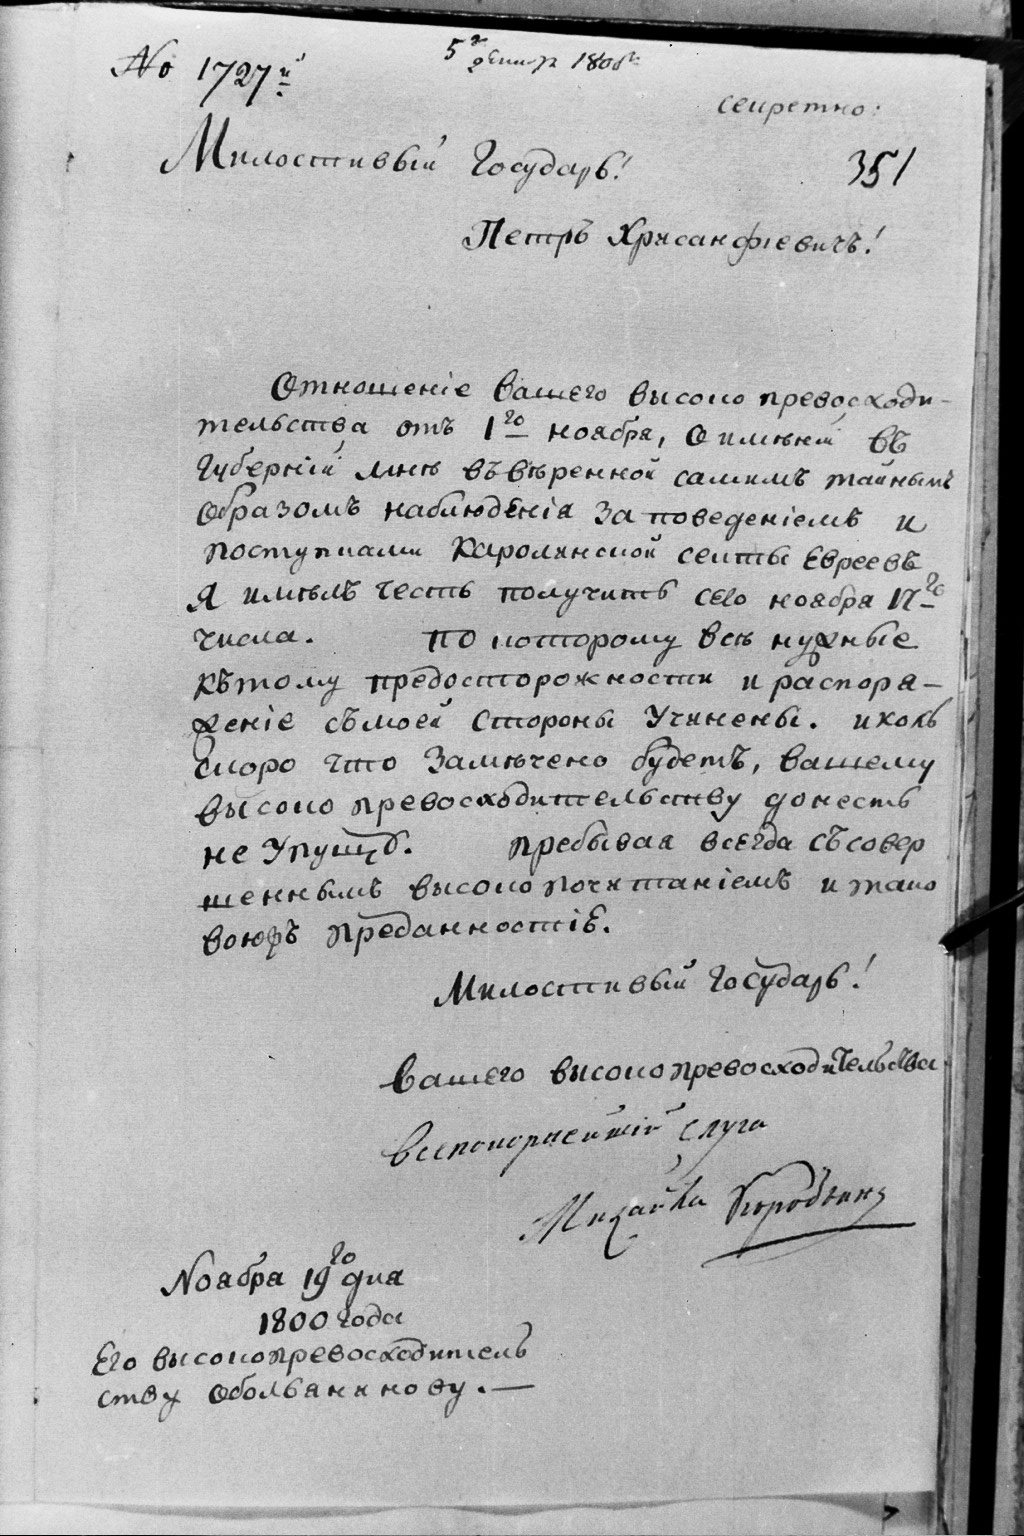 № 1727й
5го декабр 1800го
секретно:
Милостивый Государь!
351
Петръ Хрисанфіевичъ!
Отношеніе вашего высоко превосходи-
тельства отъ 1го ноября, о имѣніи въ
Губерніи мнѣ въвѣренной самимъ тайнымъ
образомъ наблюденія за поведеніемъ и
поступками Каролинской секты Евреевъ
Я имѣлъ честь получить сего ноября 17го
числа. по которому всѣ нужные
кѣтому предосторожности и распоря-
женіе съмоей стороны Учинены. и коль
скоро что Замѣчено будетъ, вашему
высоко превосходительству донесть
не Упущу. пребывая всегда съсовер
шеннымъ высоко почитаніемъ и тако
воюжъ преданностіѣ.
Милостивый Государь!
вашего высокопревосходительства
всепокорнейшій слуга
Михайла
Ноября 19го дня
1800 года
Его высокопревосходитель
ству Обольянинову.—